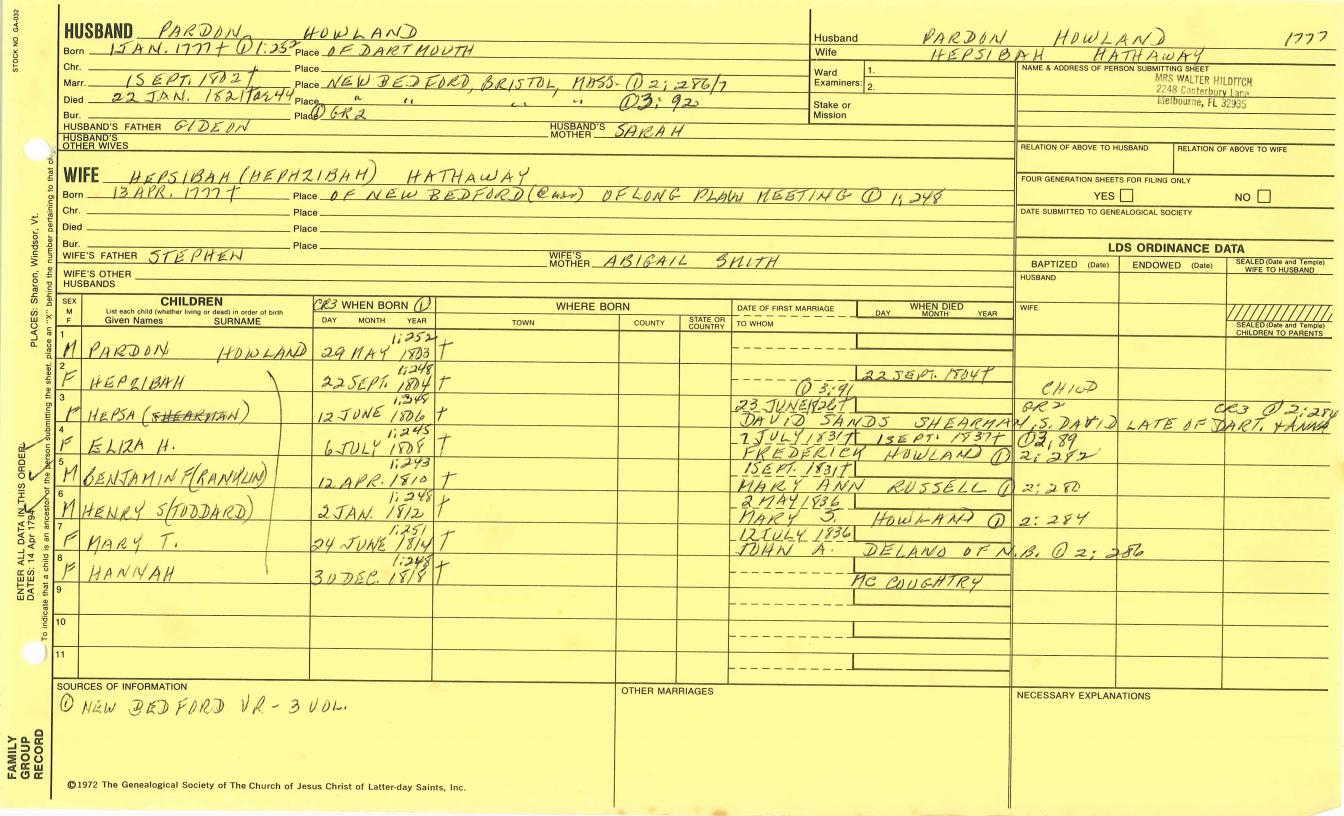 STOCK NO. GA-032
HUSBAND PARDON HOWLAND
Born 1 JAN. 1777 † ① 1:252 Place OF DARTMOUTH
Chr. Place
Marr. 1 SEPT. 1802 † Place NEW BEDFORD, BRISTOL, MASS. ① 2; 286/7
Died 22 JAN. 1821 † ae 44 Place " " " " ① 3: 92
Bur. Place ① GR2
HUSBAND'S FATHER GIDEON HUSBAND'S MOTHER SARAH
HUSBAND'S OTHER WIVES
Husband PARDON HOWLAND 1777
Wife HEPSIBAH HATHAWAY
Ward Examiners: 1.
2.
Stake or Mission
NAME & ADDRESS OF PERSON SUBMITTING SHEET
MRS WALTER HILDITCH
2248 Canterbury Lane
Melbourne, FL 32935
RELATION OF ABOVE TO HUSBAND RELATION OF ABOVE TO WIFE
FOUR GENERATION SHEETS FOR FILING ONLY
YES NO
DATE SUBMITTED TO GENEALOGICAL SOCIETY
WIFE HEPSIBAH (HEPHZIBAH) HATHAWAY
Born 13 APR. 1777 † Place OF NEW BEDFORD OF LONG PLAIN MEETING ① 1; 248
Chr. Place
Died Place
Bur. Place
WIFE'S FATHER STEPHEN WIFE'S MOTHER ABIGAIL SMITH
WIFE'S OTHER HUSBANDS
LDS ORDINANCE DATA
BAPTIZED (Date) ENDOWED (Date) SEALED (Date and Temple) WIFE TO HUSBAND
HUSBAND
WIFE
SEALED (Date and Temple) CHILDREN TO PARENTS
SEX M F CHILDREN CR3 WHEN BORN ① WHERE BORN DATE OF FIRST MARRIAGE WHEN DIED
List each child (whether living or dead) in order of birth
Given Names SURNAME DAY MONTH YEAR TOWN COUNTY STATE OR COUNTRY TO WHOM DAY MONTH YEAR
1 1;252
M PARDON HOWLAND 29 MAY 1803 †
2 1;248 22 SEPT. 1804 †
F HEPZIBAH 22 SEPT. 1804 † ① 3;91 CHILD
3 1;248 23 JUNE 1826 † GR2 CR3 ① 2;284
F HEPSA (SHEARMAN) 12 JUNE 1806 † DAVID SANDS SHEARMAN, S. DAVID LATE OF DART. & HANNA
4 1;245 7 JULY 1831 † 1 SEPT. 1837 † ① 3, 89
F ELIZA H. 6 JULY 1808 † FREDERICK HOWLAND ① 2; 282
5 1;243 1 SEPT. 1831 †
M BENJAMIN F(RANKLIN) 12 APR. 1810 † MARY ANN RUSSELL ① 2; 280
6 1;248 2 MAY 1836
M HENRY S(TODDARD) 2 JAN. 1812 † MARY S. HOWLAND ① 2: 284
7 1;251 12 JULY 1836
F MARY T. 24 JUNE 1814 † JOHN A. DELANO OF N.B. ① 2; 286
8 1;248
F HANNAH 30 DEC. 1818 † MC COUGHTRY
9
10
11
SOURCES OF INFORMATION
① NEW BEDFORD VR - 3 VOL.
OTHER MARRIAGES
NECESSARY EXPLANATIONS
©1972 The Genealogical Society of The Church of Jesus Christ of Latter-day Saints, Inc.
FAMILY GROUP RECORD
ENTER ALL DATA IN THIS ORDER:
DATES: 14 Apr 1794
PLACES: Sharon, Windsor, Vt.
To indicate that a child is an ancestor of the person submitting the sheet, place an "X" behind the number pertaining to that